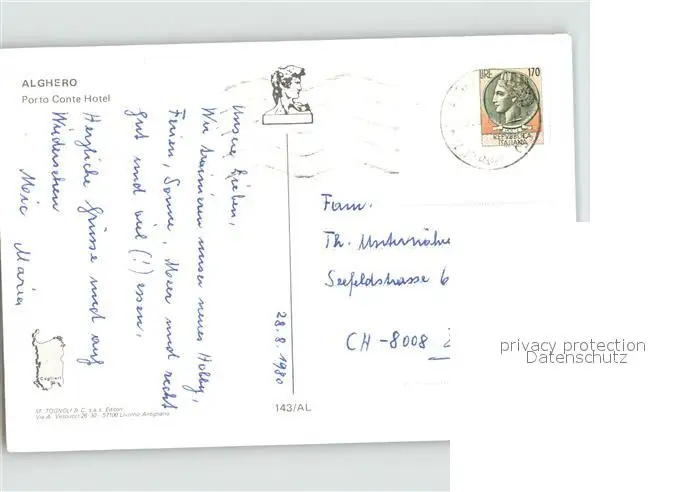 ALGHERO
Porto Conte Hotel
Unsere Lieben,
Wir trainieren unser neues Hobby,
Ferien, Sonne, Meer und recht
gut und viel (!) essen.
Herzliche Grüsse und auf
Wiedersehen
Maria
28.8.1980
LIRE 170
REPVBBLICA
ITALIANA
Fam.
Th.
Seefeldstrasse 6
CH-8008 Z
privacy protection
Datenschutz
Cagliari
143/AL
M. TOGNOLI & C. s.a.s. Editori
Via A. Vespucci 26-30 - 57100 Livorno-Antignano